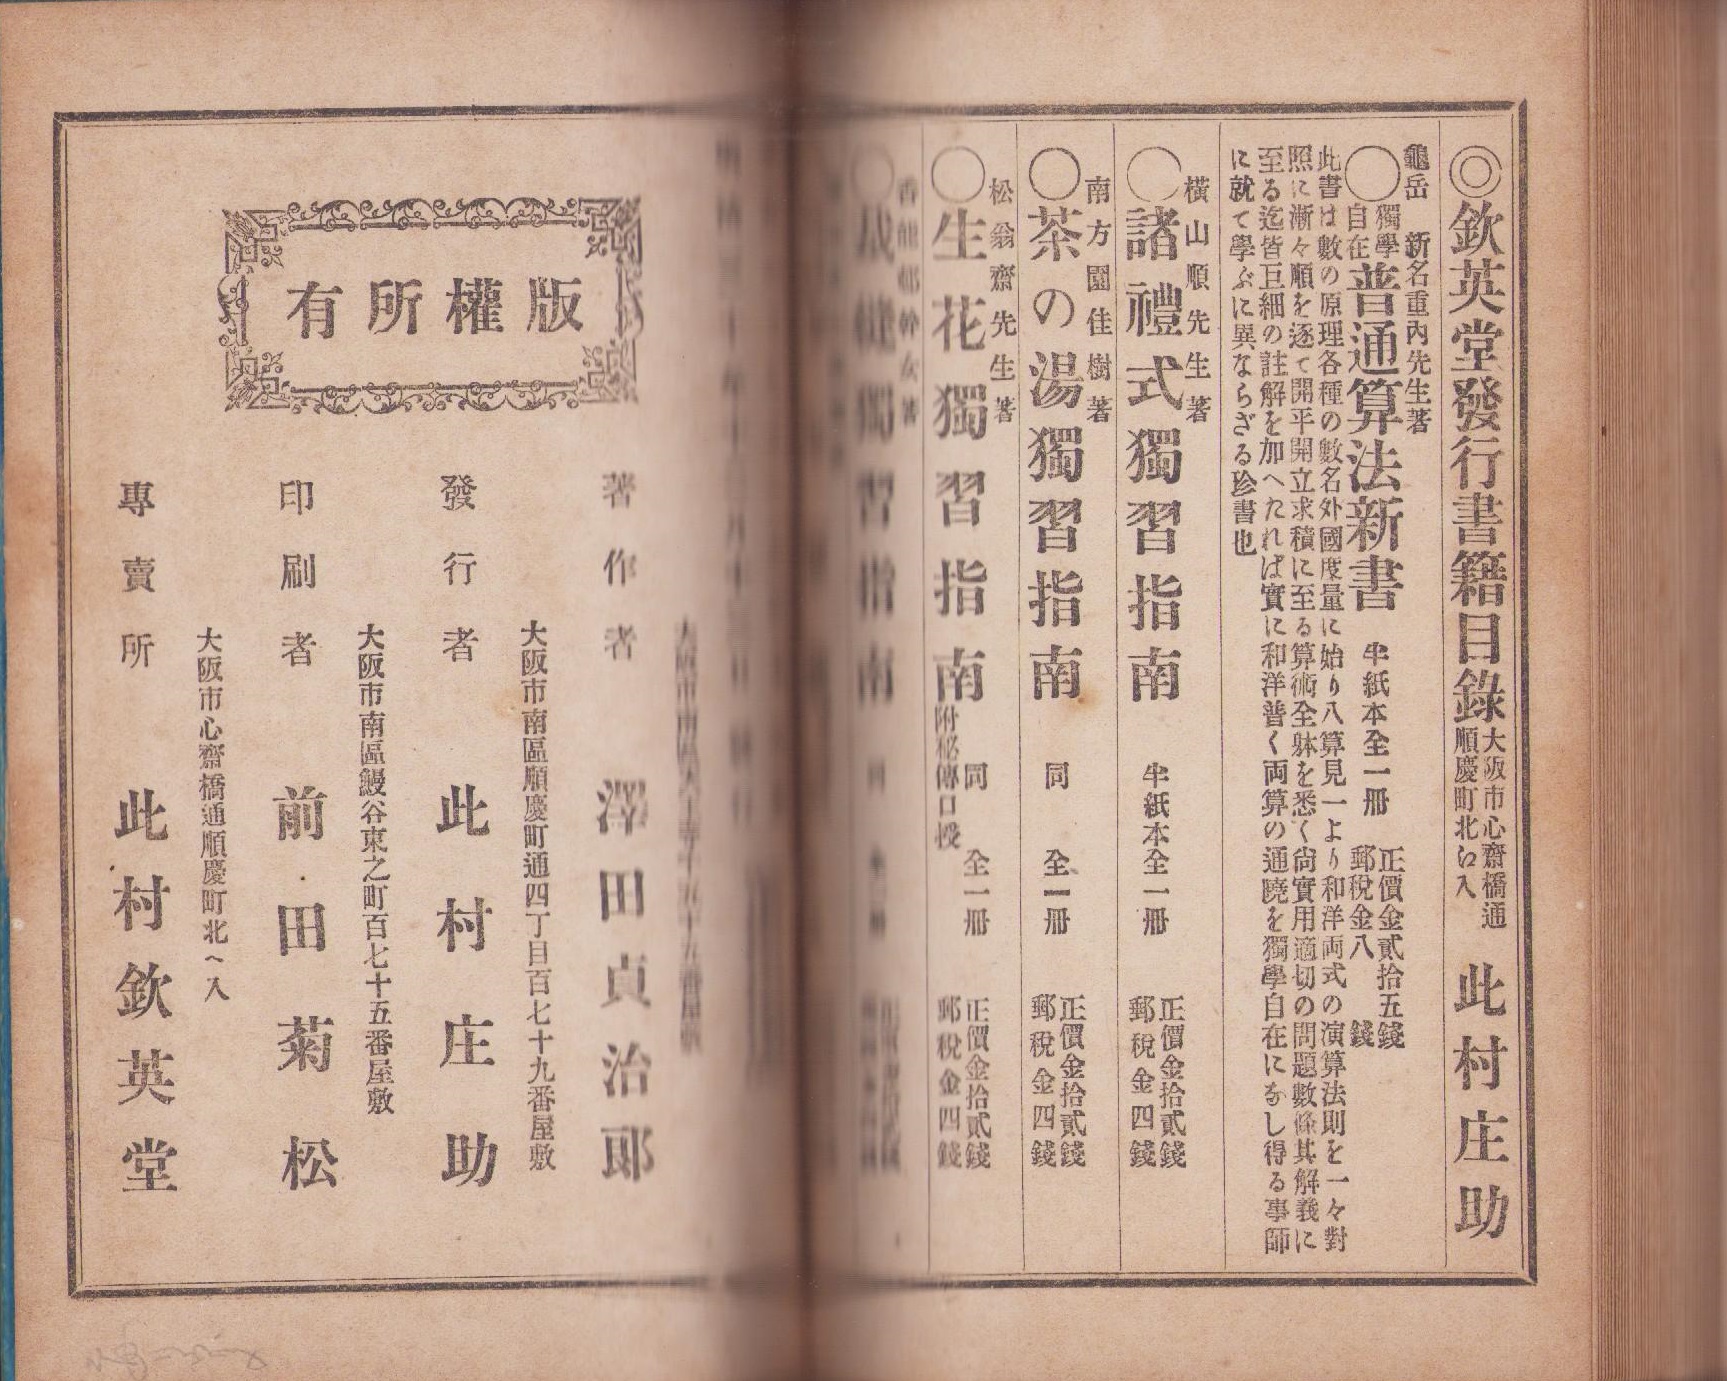 ◎欽英堂發行書籍目錄 大阪市心齋橋通
順慶町北ヘ入 此村庄助
龜岳 新名重內先生著
○獨學自在 普通算法新書 半紙本全一册 正價金貳拾五錢
郵稅金八錢
此書は數の原理各種の數名外國度量に始り八算見一より和洋両式の演算法則を一々對
照に漸々順を逐て開平開立求積に至る算術全躰を悉く尙實用適切の問題數條其解義に
至る迄皆巨細の註解を加へたれば實に和洋普く両算の通曉を獨學自在になし得る事師
に就て學ぶに異ならざる珍書也
橫山順先生著
○諸禮式獨習指南 半紙本全一册 正價金拾貳錢
郵稅金四錢
南方園佳樹著
○茶の湯獨習指南 同 全一册 正價金拾貳錢
郵稅金四錢
松翁齋先生著
○生花獨習指南 附秘傳口授 同 全一册 正價金拾貳錢
郵稅金四錢
獨習指南
版權所有
著作者 澤田貞治郎
大阪市南區順慶町通四丁目百七十九番屋敷
發行者 此村庄助
大阪市南區鰻谷東之町百七十五番屋敷
印刷者 前田菊松
大阪市心齋橋通順慶町北ヘ入
專賣所 此村欽英堂